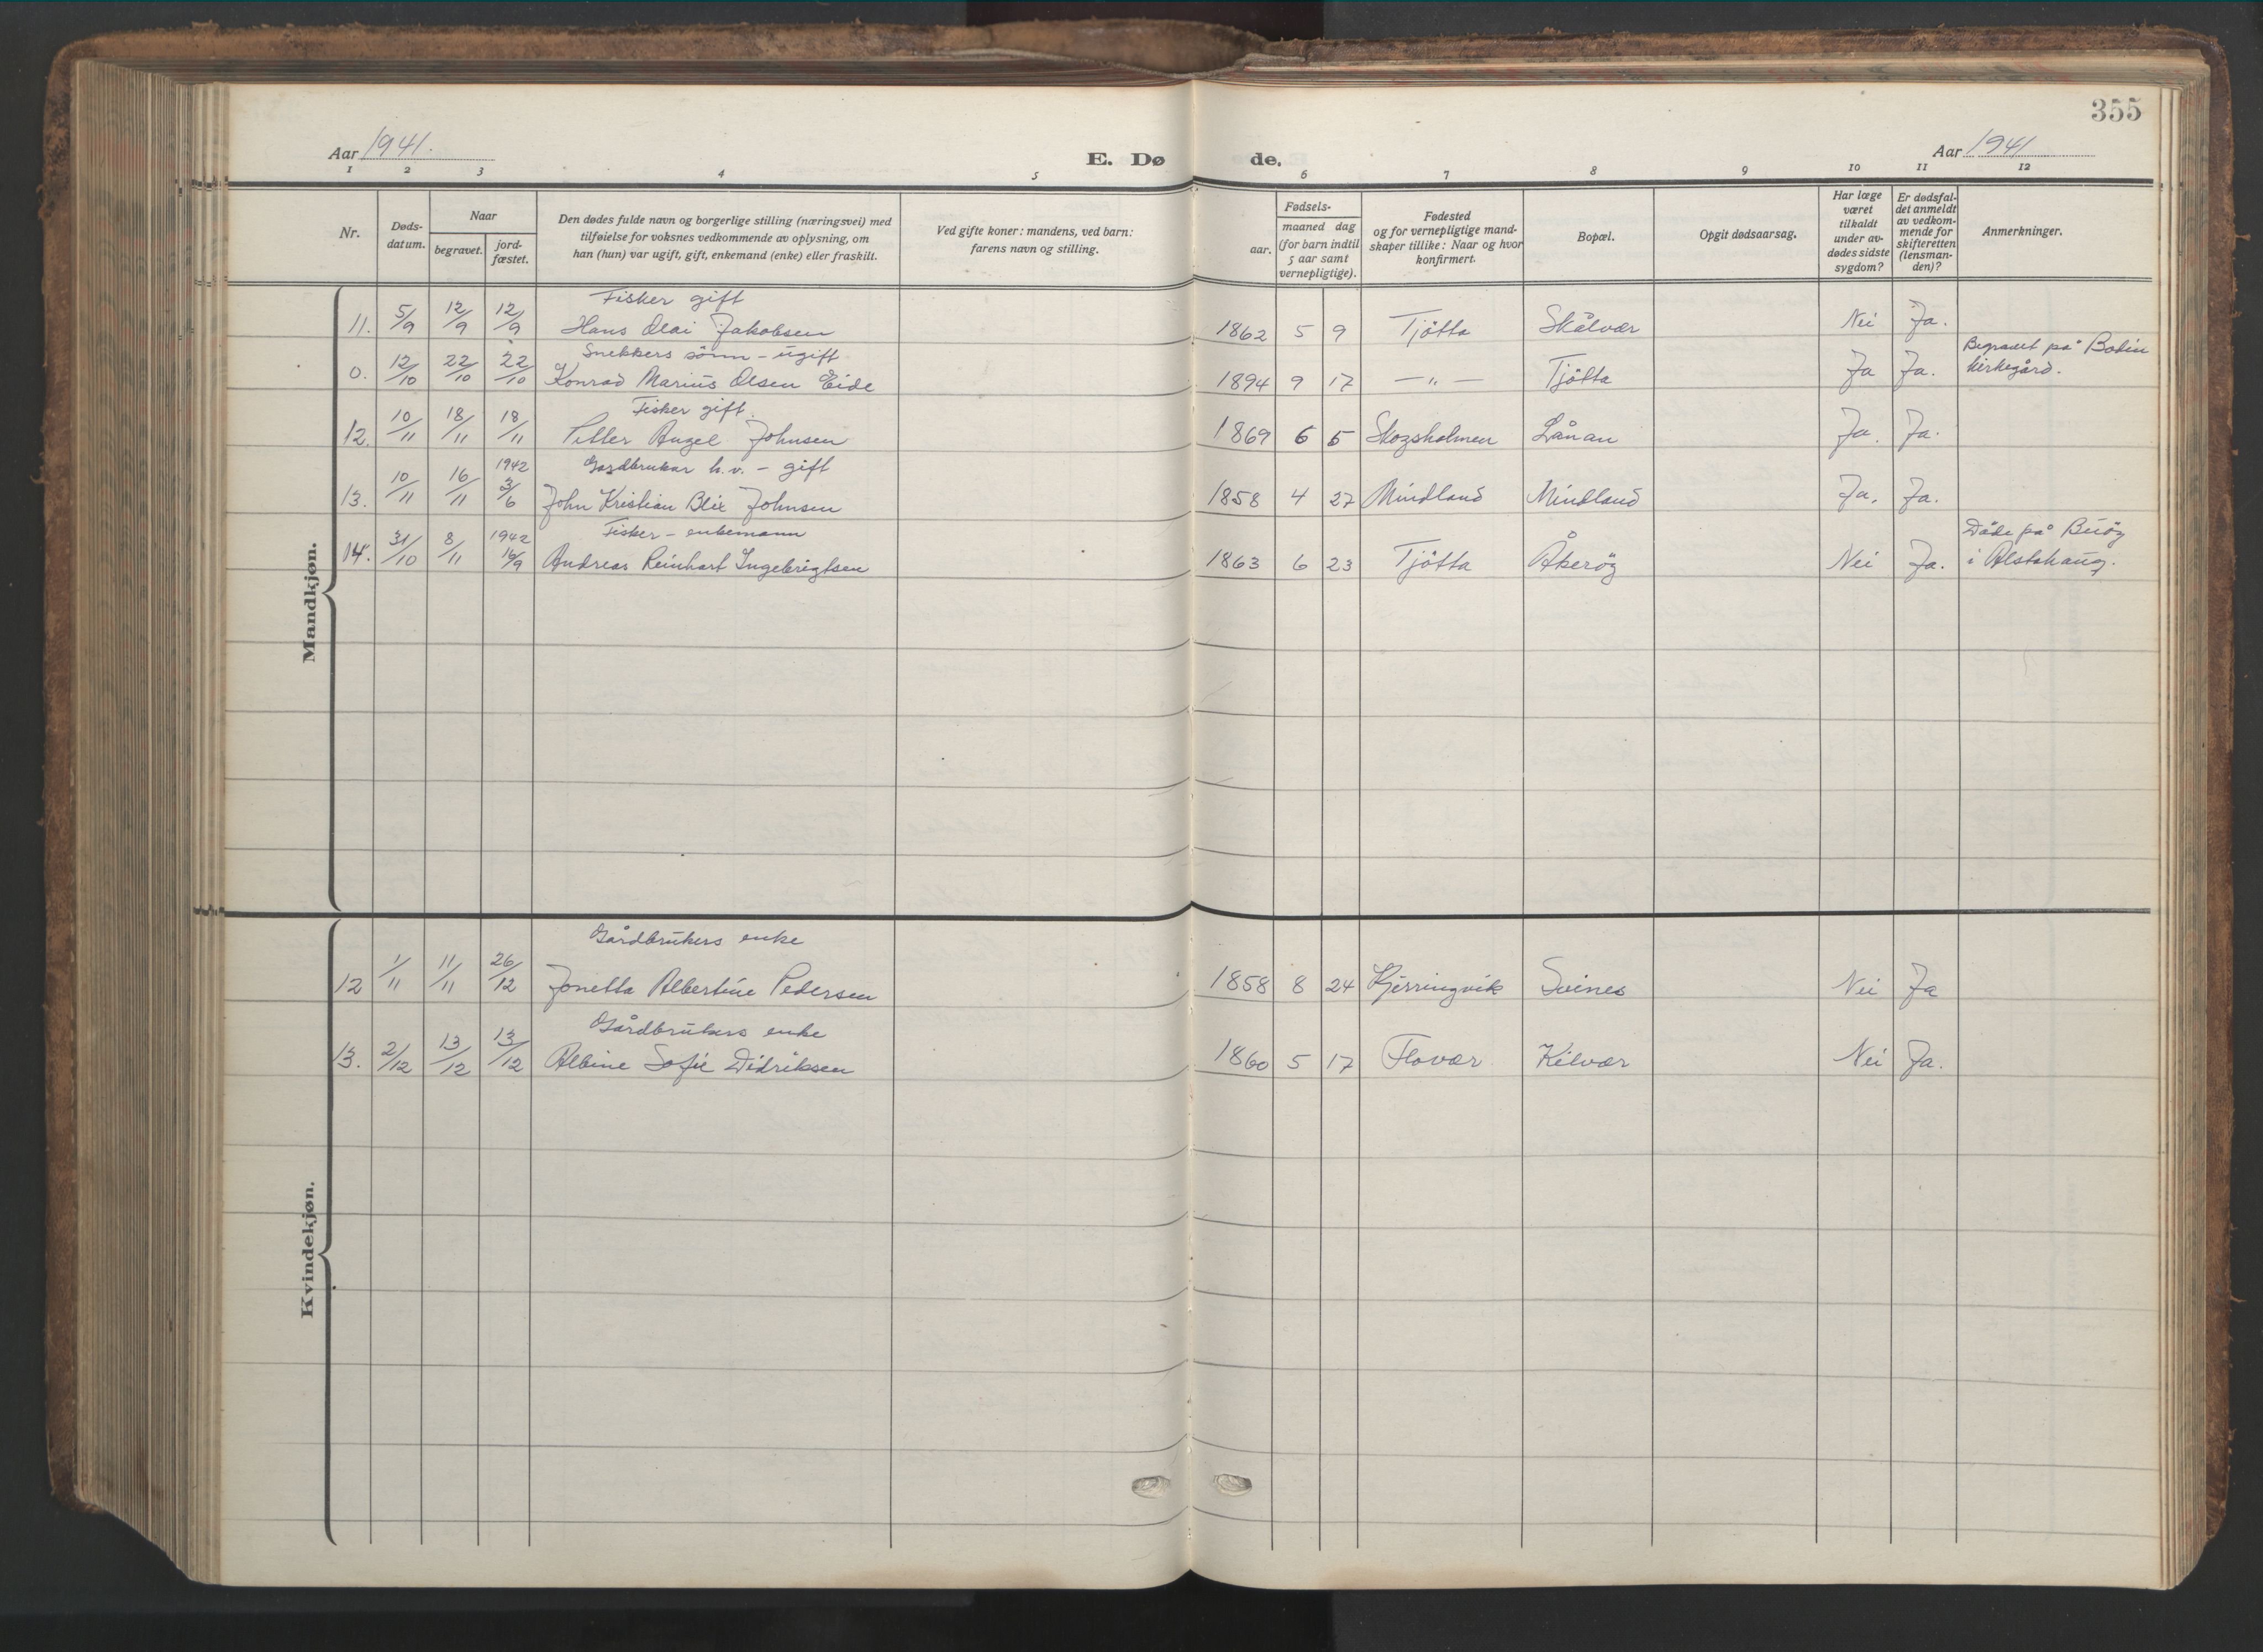 355
Aar 1941.
E. Dø de.
Aar 1941
1 2 3 4 5 6 7 8 9 10 11 12
Nr.
Døds-
datum.
Naar
begravet.
jord-
fæstet.
Den dødes fulde navn og borgerlige stilling (næringsvei) med
tilføielse for voksnes vedkommende av oplysning, om
han (hun) var ugift, gift, enkemand (enke) eller fraskilt.
Ved gifte koner: mandens, ved barn:
farens navn og stilling.
Fødsels-
aar.
maaned dag
(for barn indtil
5 aar samt
vernepligtige).
Fødested
og for vernepligtige mand-
skaper tillike: Naar og hvor
konfirmert.
Bopæl.
Opgit dødsaarsag.
Har læge
været
tilkaldt
under av-
dødes sidste
sygdom?
Er dødsfal-
det anmeldt
av vedkom-
mende for
skifteretten
(lensman-
den)?
Anmerkninger.
Mandkjøn.
Fisker gift
11. 5/9 12/9 12/9 Hans Olai Jakobsen 1862 5 9 Tjötta Skålvær Nei Ja.
Snekkers sönn - ugift Begravet på Bodin
0. 12/10 22/10 22/10 Konrad Marius Olsen Eide 1894 9 17 — " — Tjötta Ja Ja. kirkegård.
Fisker gift.
12. 10/11 18/11 18/11 Petter Angel Johnsen 1869 6 5 Skogsholmen Lånan Ja. Ja.
1942 Gardbruker h.v. - gift
13. 10/11 16/11 3/6 John Kristian Blix Johnsen 1858 4 27 Mindland Mindland Ja. Ja.
1942 Fisker - enkemann Döde på Buöy
14. 31/10 8/11 16/9 Andreas Reinhart Ingebrigtsen 1863 6 23 Tjötta Åkeröy Nei Ja. i Alstahaug.
Kvindekjøn.
Gårdbrukers enke
12 1/11 11/11 26/12 Jonetta Albertine Pedersen 1858 8 24 Kjerringvik Svines Nei Ja
Gårdbrukers enke
13. 2/12 13/12 13/12 Albine Sofie Didriksen 1860 5 17 Flovær Kilvær Nei Ja.